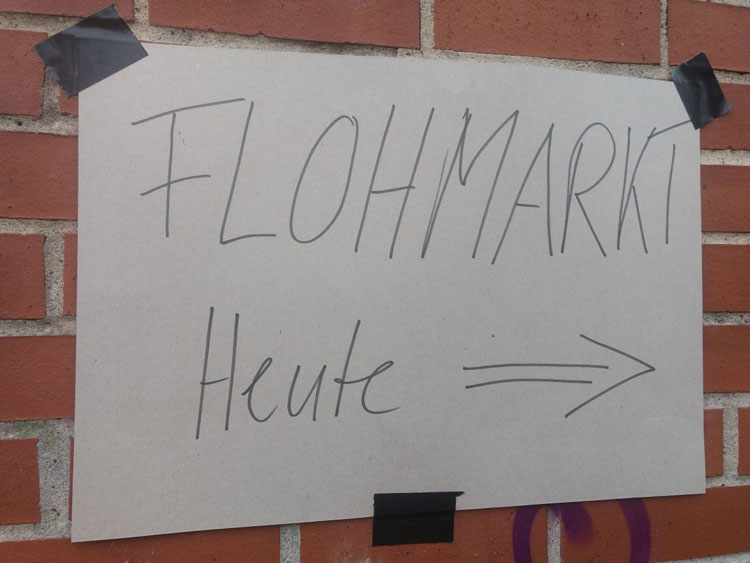 FLOHMARKT
Heute